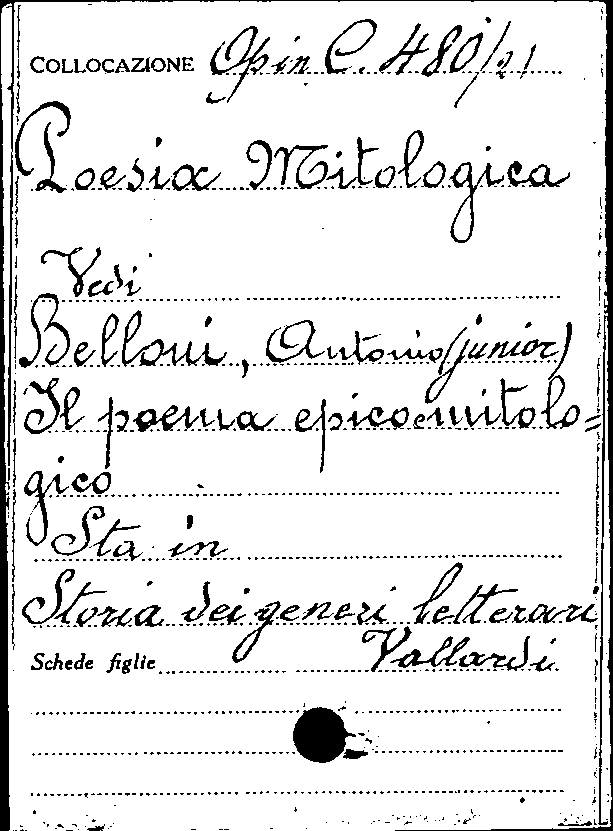 COLLOCAZIONE Opin C. 480/21
Poesia Mitologica
Vedi
Belloni, Antonio (junior)
Il poema epico e mitolo=
gico
Sta in
Storia dei generi letterari
Schede figlie Vallardi